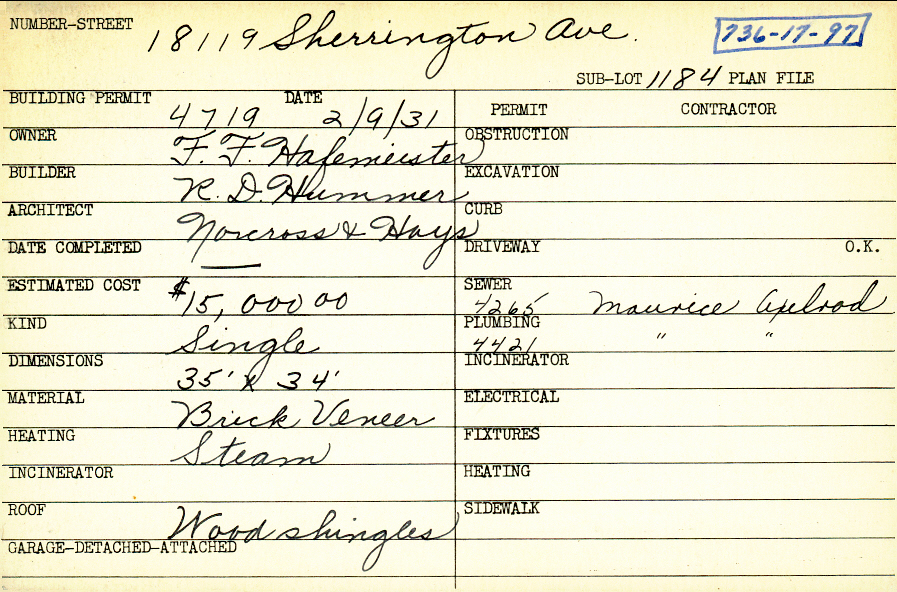 NUMBER-STREET 18119 Sherrington Ave. 736-17-97
SUB-LOT 1184 PLAN FILE
BUILDING PERMIT 4719 DATE 2/9/31
OWNER F. F. Hafemeister
BUILDER R. D. Hummer
ARCHITECT Norcross & Hays
DATE COMPLETED —
ESTIMATED COST $15,000 00
KIND Single
DIMENSIONS 35' x 34'
MATERIAL Brick Veneer
HEATING Steam
INCINERATOR
ROOF Wood shingles
GARAGE-DETACHED-ATTACHED
PERMIT CONTRACTOR
OBSTRUCTION
EXCAVATION
CURB
DRIVEWAY O.K.
SEWER 4265 Maurice Axelrod
PLUMBING 4421 " "
INCINERATOR
ELECTRICAL
FIXTURES
HEATING
SIDEWALK